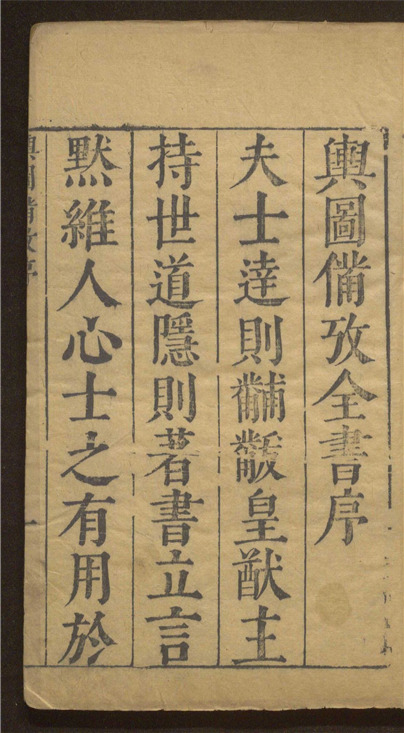 輿圖備攷全書序
夫士達則黼黻皇猷主
持世道隱則著書立言
黙維人心士之有用於
輿圖備攷序
一